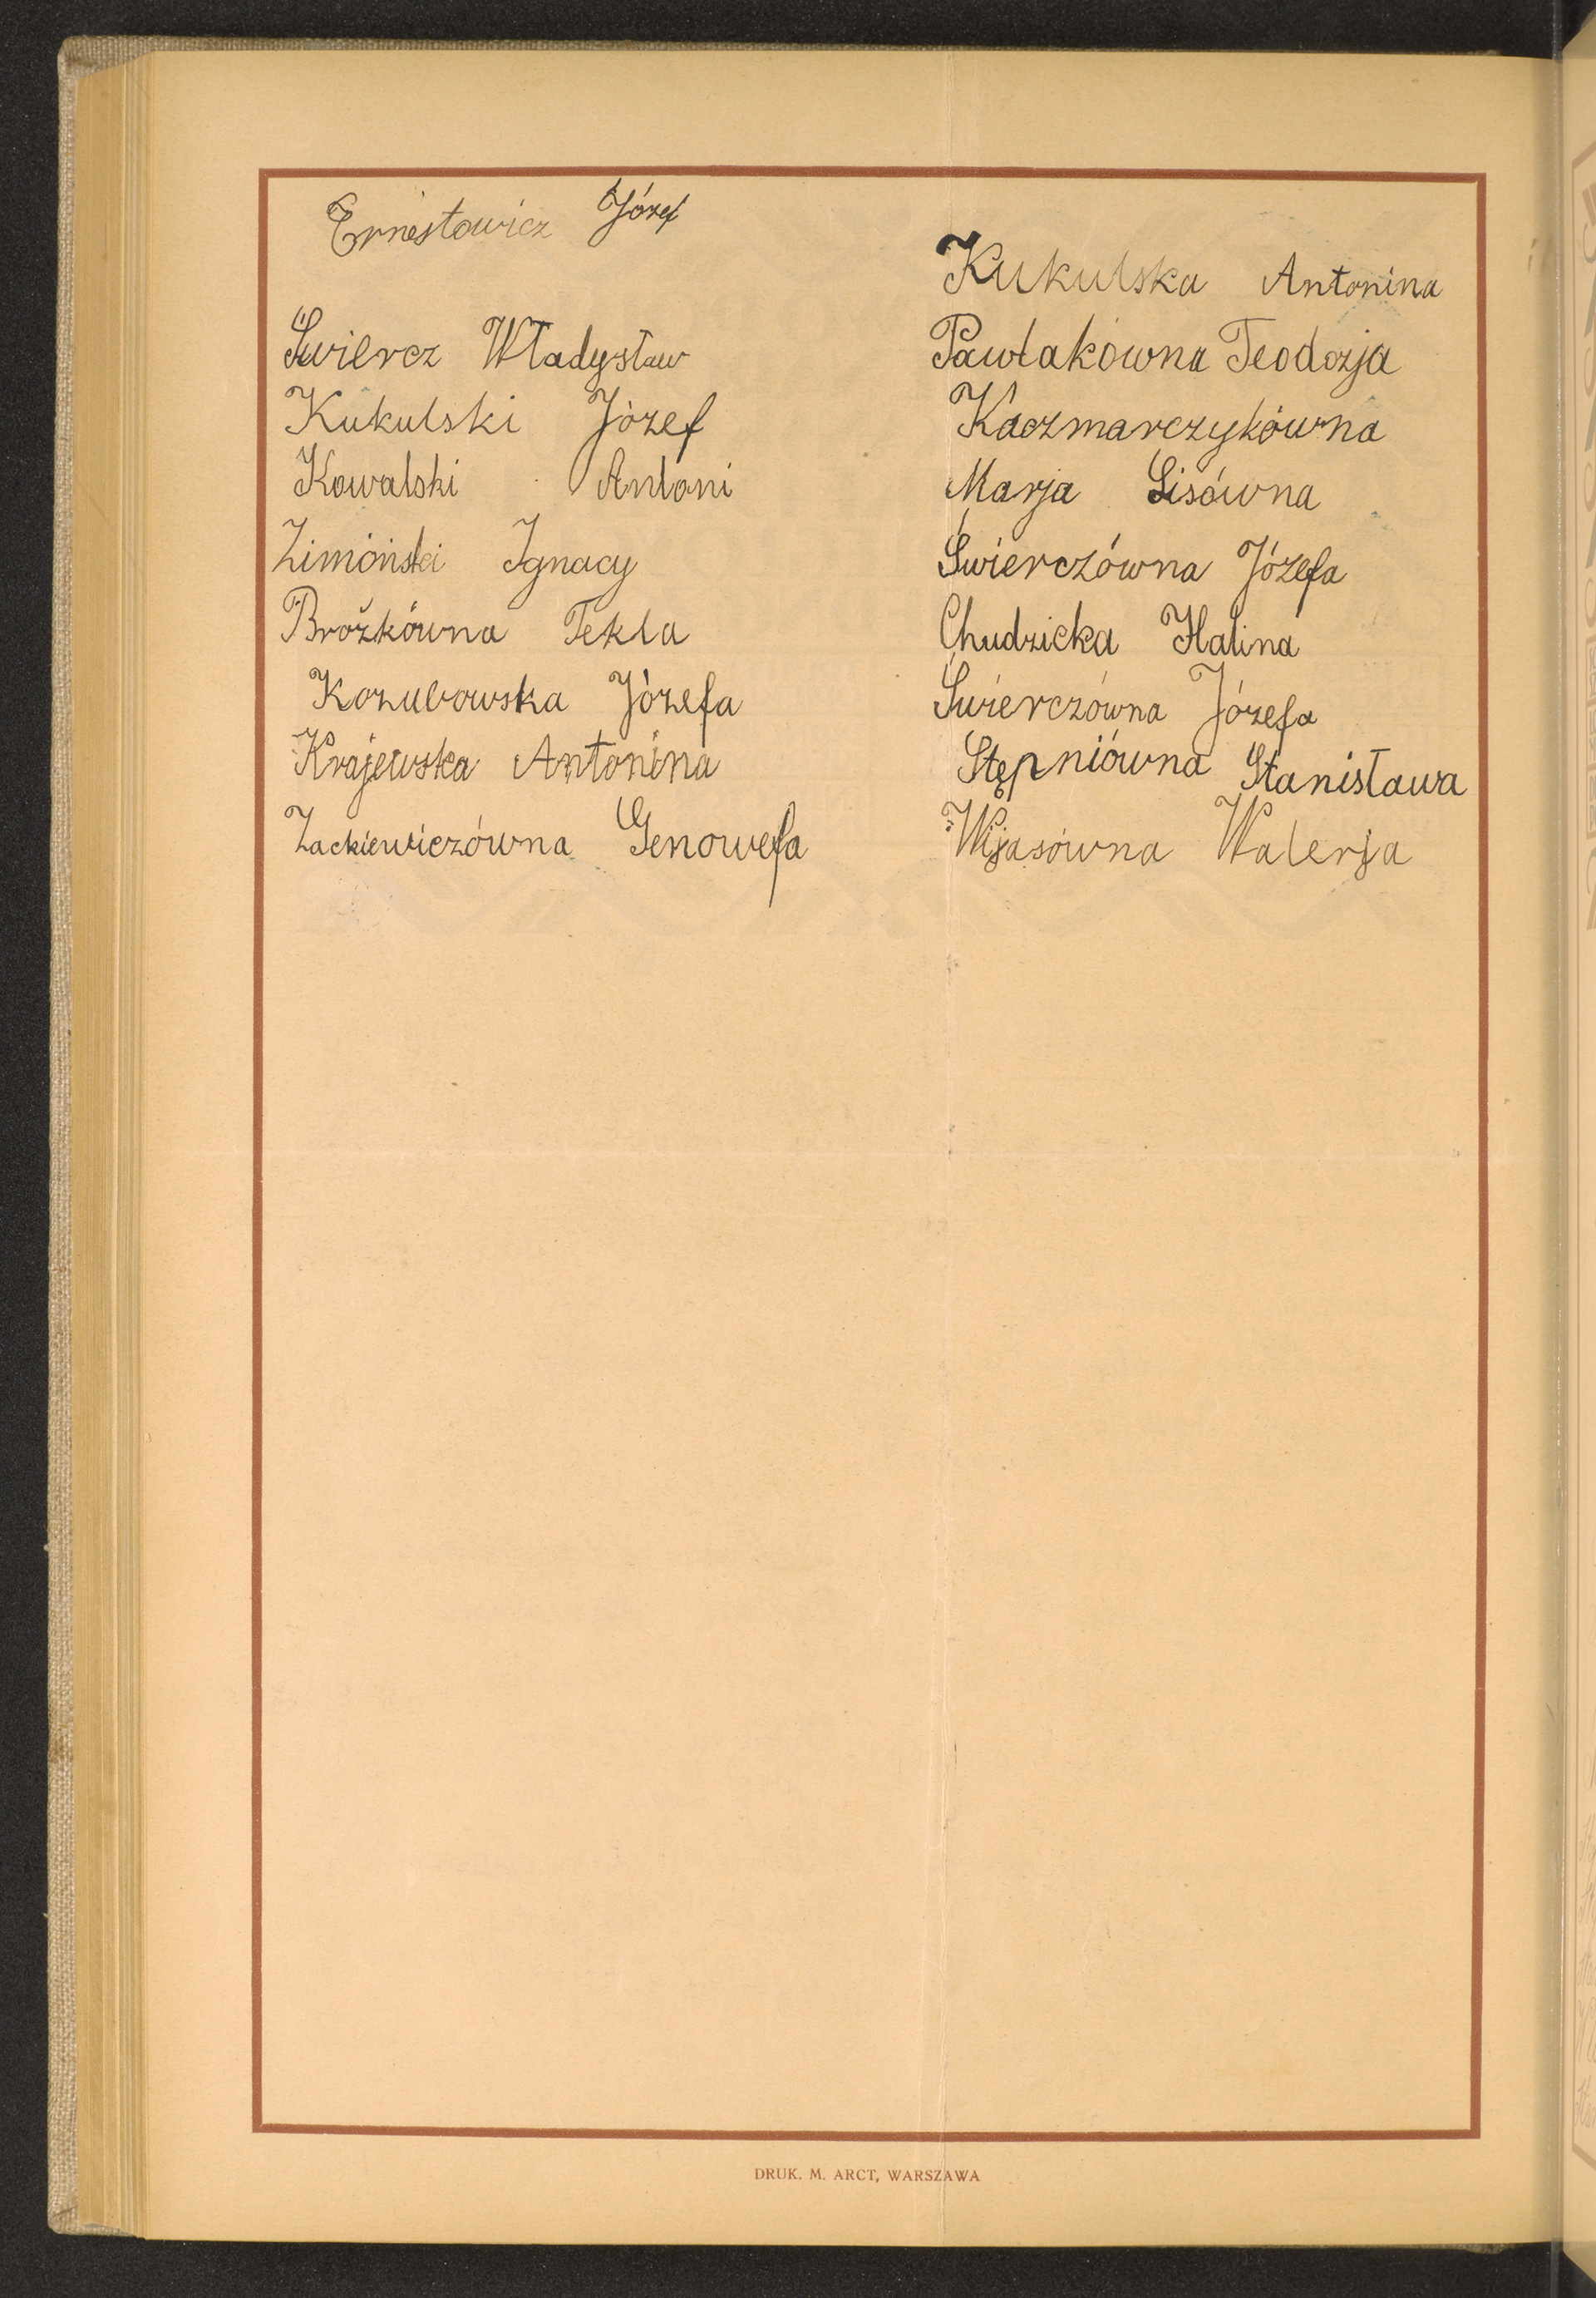 Ernestowicz Józef
Świercz Władysław
Kukulski Józef
Kowalski Antoni
Zimoński Ignacy
Brożkówna Tekla
Kozubowska Józefa
Krajewska Antonina
Zackiewiczówna Genowefa
Kukulska Antonina
Pawlakówna Teodozja
Kaczmarczykówna
Marja Lisówna
Świerczówna Józefa
Chudzicka Halina
Świerczówna Józefa
Stępniówna Stanisława
Wijasówna Walerja
DRUK. M. ARCT, WARSZAWA